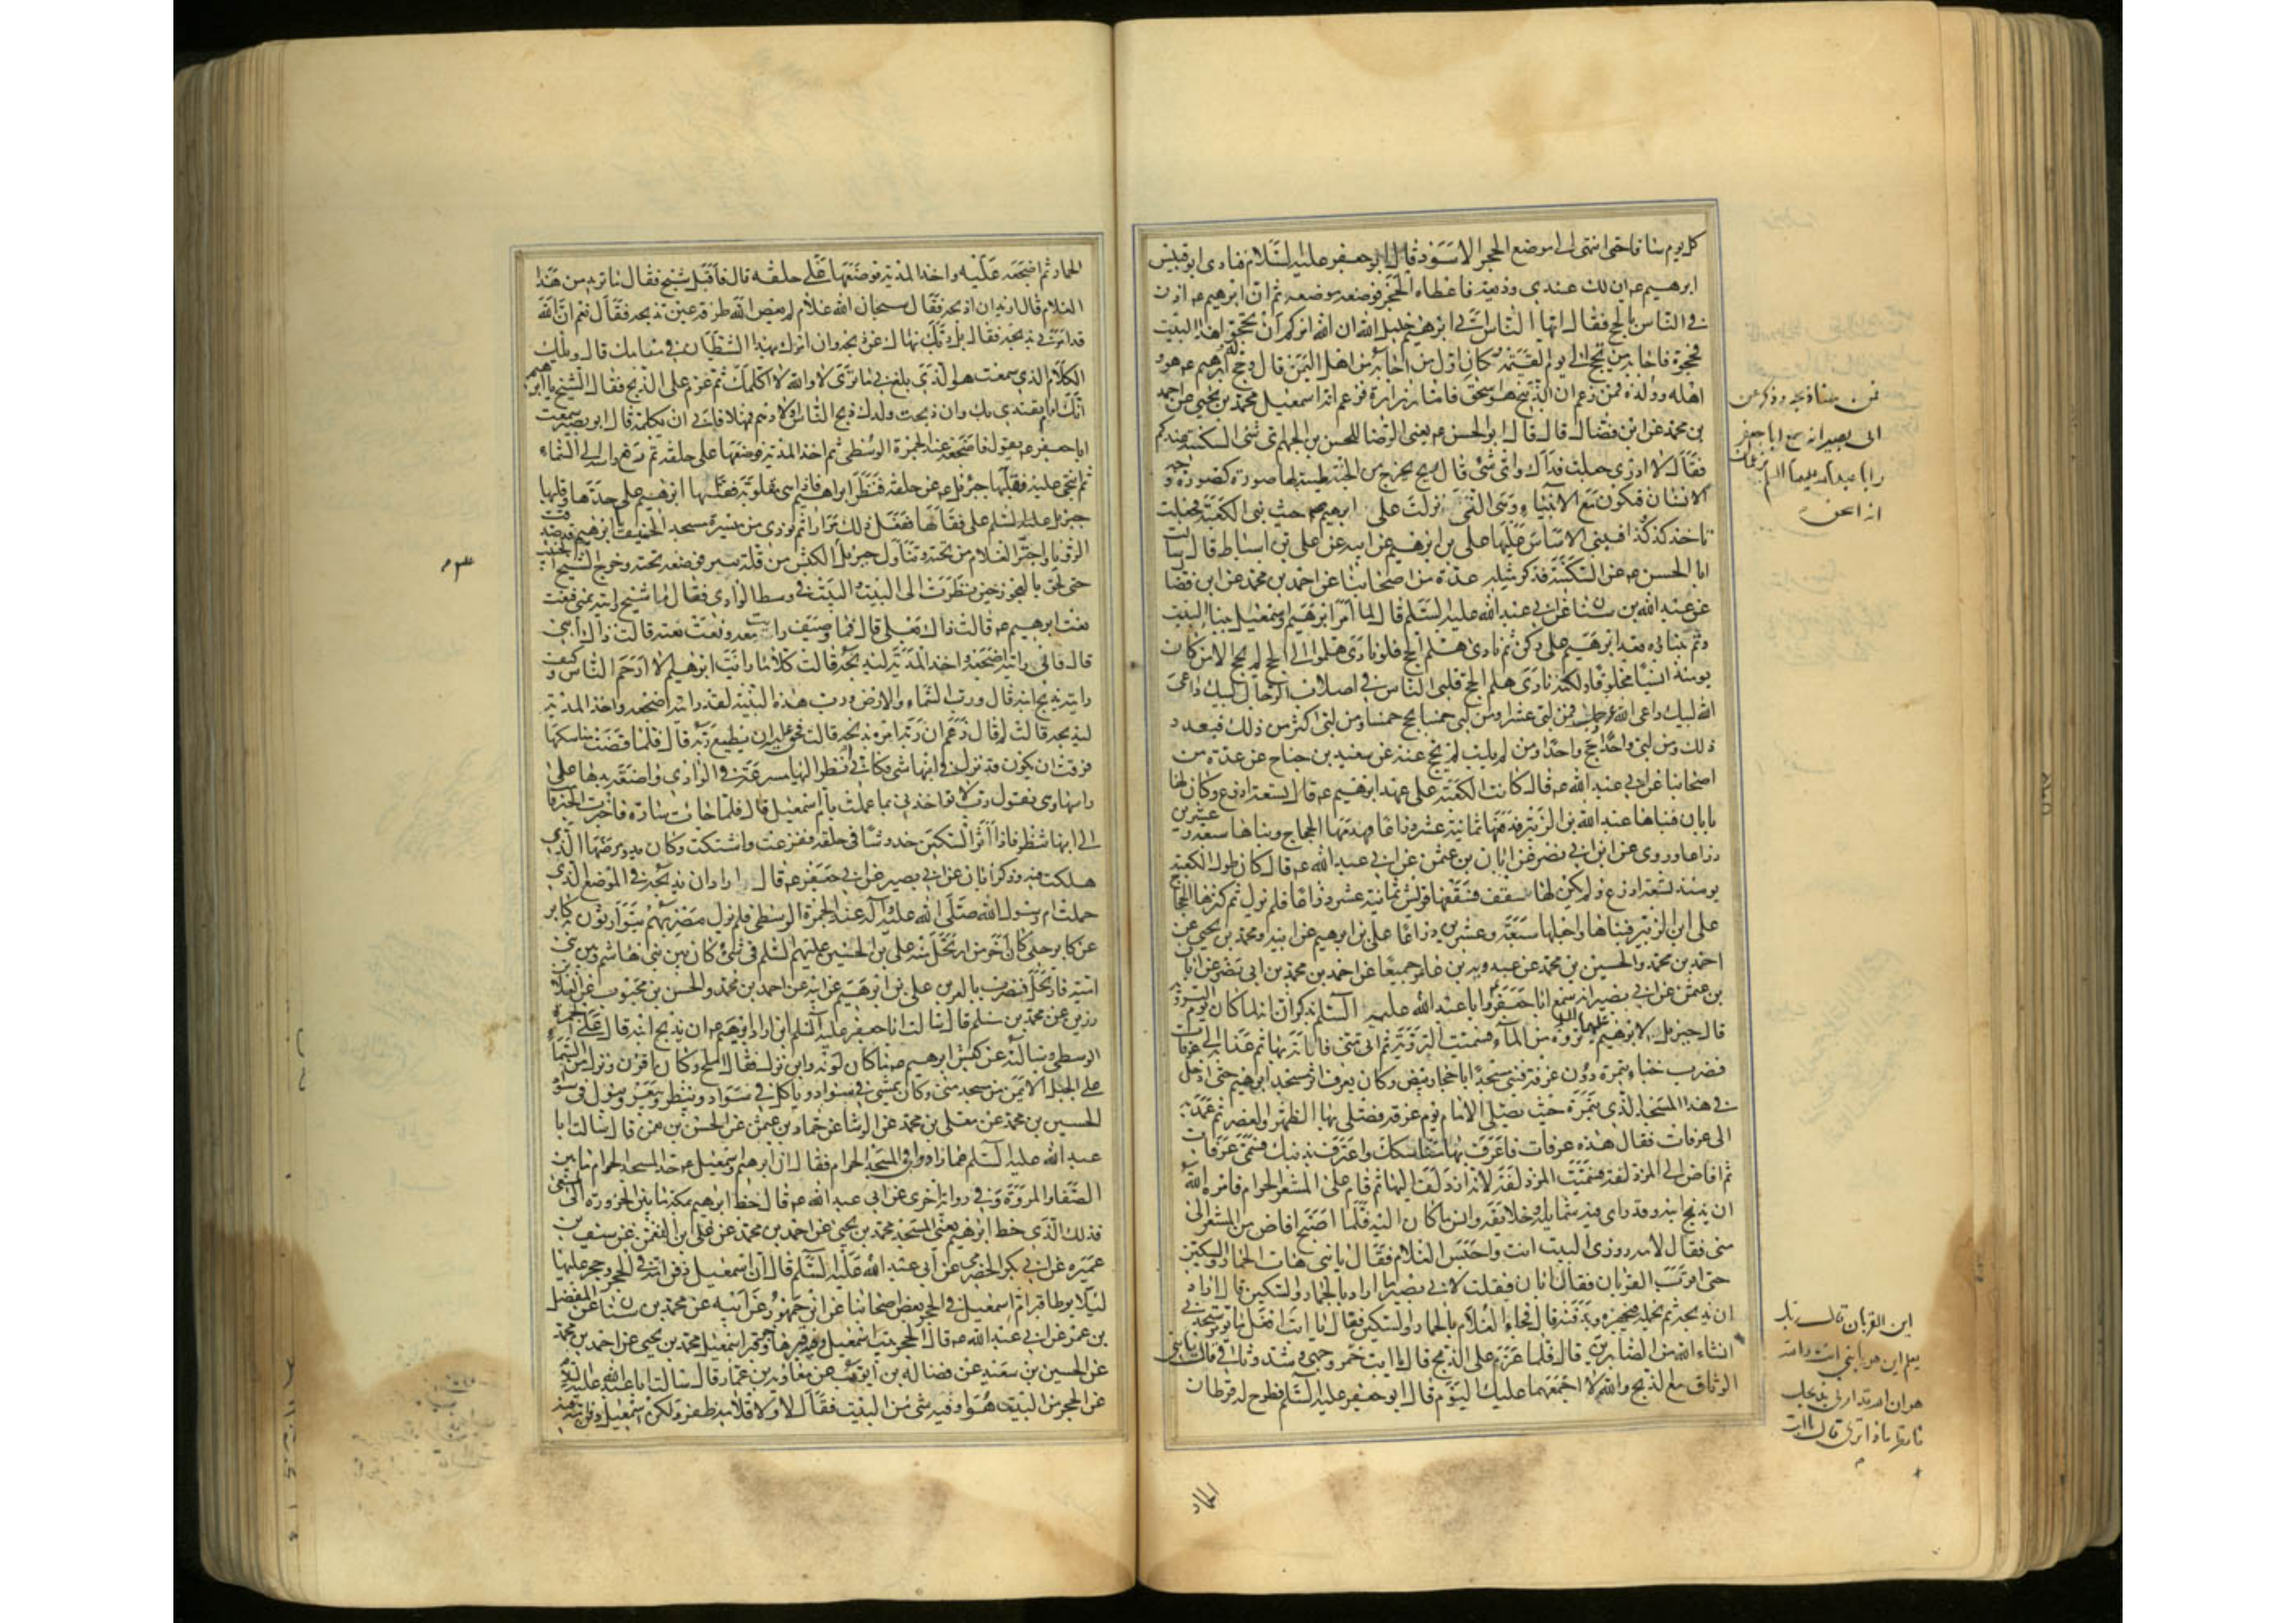 كل يوم ساقا حتى انتهى الى موضع الحجر الاسود قال ابو جعفر عليه السلام فنادى ابو قبيس
ابرهيم ع ان لك عندي وديعة فاعطاه الحجر فوضعه موضعه ثم ان ابرهيم ع اذن
في الناس بالحج فقال ايها الناس اني ابرهيم خليل الله ان الله امركم ان تحجوا هذا البيت
فحجوه فاجابه من يحج الى يوم القيمة وكان اول من اجابه من اهل اليمن قال وحج ابرهيم ع هو و
اهله وولده فمن زعم ان الذبيح هو اسحق فمن ههنا كان ذبحه
وذكر عن ابي بصير انه سمع ابا جعفر
وابا عبد الله عليهما السلم يزعمان
انه اسحق
فاما زرارة فزعم انه اسمعيل محمد بن يحيى عن احمد
بن محمد عن ابن فضال قال قال ابو الحسن ع يعني الرضا للحسن بن الجهم اي شئ السكينة عندكم
فقال لا ادري جعلت فداك واي شئ قال ريح تخرج من الجنة طيبة لها صورة كصورة وجه
الانسان فتكون مع الانبياء وهي التي نزلت على ابرهيم ع حيث بنى الكعبة فجعلت
تاخذ كذا وكذا فبنى الاساس عليها علي بن ابرهيم عن ابيه عن علي بن اسباط قال سالت
ابا الحسن ع عن السكينة فذكر مثله عدة من اصحابنا عن احمد بن محمد عن ابن فضا
عن عبد الله بن سنان عن ابي عبد الله عليه السلم قال لما امر ابرهيم واسمعيل ببناء البيت
وتم بناؤه قعد ابرهيم على ركن ثم نادى هلم الحج فلو نادى هلموا الى الحج لم يحج الا من كان
يومئذ انسيا مخلوقا ولكنه نادى هلم الحج فلبى الناس في اصلاب الرجال لبيك داعي
الله لبيك داعي الله عز وجل فمن لبى عشرا ومن لبى خمسا يحج خمسا ومن لبى اكثر من ذلك فبعدد
ذلك ومن لبى واحدا حج واحدا ومن لم يلب لم يحج عنه عن سعيد بن جناح عن عدة من
اصحابنا عن ابي عبد الله ع قال كانت الكعبة على عهد ابرهيم ع قال تسعة اذرع وكان لها
بابان فبناها عبد الله بن الزبير فرفعها ثمانية عشر ذراعا فهدمها الحجاج وبناها سبعة وعشرين
ذراعا وروي عن ابن ابي نصر عن ابان بن عثمن عن ابي عبد الله ع قال كان طول الكعبة
يومئذ تسعة اذرع ولم يكن لها سقف فسقفها قريش ثمانية عشر ذراعا فلم تزل ثم كسرها الحجاج
على ابن الزبير فبناها واجعلها سبعة وعشرين ذراعا علي بن ابرهيم عن ابيه ومحمد بن يحيى عن
احمد بن محمد والحسين بن محمد عن عبدويه بن عامر جميعا عن احمد بن محمد بن ابي نصر عن ابان
بن عثمن عن ابي بصير انه سمع ابا جعفر وابا عبد الله عليهم السلم يذكران انه لما كان يوم التروية
قال جبرئيل لابرهيم عليهما السلم تروه من الماء فسميت التروية ثم اتى منى فاباته بها ثم غدا به الى عرفات
فضرب خباه بنمرة دون عرفة فبنى مسجدا باحجار بيض وكان يعرف اثر مسجد ابرهيم حتى ادخل
في هذا المسجد الذي بنمرة حيث يصلي الامام يوم عرفة فصلى بها الظهر والعصر ثم عمد به
الى عرفات فقال هذه عرفات فاعرف بها مناسكك واعترف بذنبك فسمي عرفات
ثم افاض الى المزدلفة فسميت المزدلفة لانه ازدلف اليها ثم قام على المشعر الحرام فامره الله
ان يذبح ابنه وقد راى فيه شمايله وخلايقه وانس ما كان اليه فلما اصبح افاض من المشعر الى
منى فقال لامه زوري البيت انت واحتبس الغلام فقال يا بني هات الحمار والسكين
حتى اقرب القربان فقال ابان فقلت لابي بصير ما اراد بالحمار والسكين قال اراد
ان يذبحه ثم يحمله فيجهزه ويدفنه قال فجاء الغلام بالحمار والسكين فقال يا ابت
اين القربان قال ربك
يعلم اين هو يا بني انت والله
هو ان الله قد امرني بذبحك
فانظر ماذا ترى قال يا ابت
افعل ما تؤمر ستجدني
انشاء الله من الصابرين قال فلما عزم على الذبح قال يا ابت خمر وجهي وشد وثاقي قال يا بني
الوثاق مع الذبح والله لا اجمعهما عليك اليوم قال ابو جعفر عليه السلم فطرح له قرطان
الحمار
الحمار ثم اضجعه عليه واخذ المدية فوضعها على حلقه قال فاقبل شيخ فقال ما تريد من هذا
الغلام قال اريد ان اذبحه فقال سبحان الله غلام لم يعص الله طرفة عين تذبحه فقال نعم ان الله
قد امرني بذبحه فقال بل ربك نهاك عن ذبحه وانما امرك بهذا الشيطان في منامك قال ويلك
الكلام الذي سمعت هو الذي بلغ بي ما ترى لا والله لا اكلمك ثم عزم على الذبح فقال الشيخ يا ابرهيم
انك امام يقتدى بك وان ذبحت ولدك ذبح الناس اولادهم فمهلا فابى ان يكلمه قال ابو بصير سمعت
ابا جعفر ع يقول فاضجعه عند الجمرة الوسطى ثم اخذ المدية فوضعها على حلقه ثم رفع راسه الى السماء
ثم انتحى عليه فقلبها جبرئيل ع عن حلقه فنظر ابراهيم فاذا هي مقلوبة فقلبها ابرهيم على حدها وقلبها
جبرئيل عليه السلم على قفاها ففعل ذلك مرارا ثم نودي من ميسرة مسجد الخيف يا ابرهيم قد صدقت
الرؤيا واجتر الغلام من تحته وتناول جبرئيل الكبش من قلة ثبير فوضعه تحته وخرج الشيخ الخبيث
حتى لحق بالعجوز حين نظرت الى البيت والبيت في وسط الوادي فقال ما شيخ رايته بمنى فنعت
نعت ابرهيم ع قالت ذاك بعلي قال فما وصيف رايته معه ونعت نعته قالت ذاك ابني
قال فاني رايته اضجعه واخذ المدية ليذبحه قالت كلا ما رايت ابرهيم الا ارحم الناس وكيف
رايته يذبح ابنه قال ورب السماء والارض ورب هذه البنية لقد رايته اضجعه واخذ المدية
ليذبحه قالت لم قال زعم ان ربه امره بذبحه قالت فحق عليه ان يطيع ربه قال فلما قضت مناسكها
فرقت ان يكون قد نزل في ابنها شئ فكاني انظر اليها مسرعة في الوادي واضعة يدها على
راسها وهي تقول رب لا تواخذني بما عملت بام اسمعيل قال فلما جاءت سارة فاخبرت الخبر قامت
الى ابنها تنظر فاذا اثر السكين خدوشا في حلقه ففزعت واشتكت وكان بدو مرضها الذي
هلكت فيه وذكر ابان عن ابي بصير عن ابي جعفر ع قال اراد ان يذبحه في الموضع الذي
حملت ام رسول الله صلى الله عليه وآله عند الجمرة الوسطى فلم يزل مضربهم يتوارثون كابر
عن كابر حتى كان آخر من ارتحل منه علي بن الحسين عليهم السلم في شئ كان بين بني هاشم وبين بني
امية فارتحل فضرب بالعرين علي بن ابرهيم عن ابيه عن احمد بن محمد والحسن بن محبوب عن العلا بن
رزين عن محمد بن مسلم قال سالت ابا جعفر عليه السلم اين اراد ابرهيم ع ان يذبح ابنه قال على الجمرة
الوسطى وسالته عن كبش ابرهيم ع ما كان لونه واين نزل فقال املح وكان اقرن ونزل من السماء
على الجبل الايمن من مسجد منى وكان يمشي في سواد وياكل في سواد وينظر ويبعر ويبول في سواد
الحسين بن محمد عن معلى بن محمد عن الوشا عن حماد بن عثمن عن الحسن بن نعمن قال سالت ابا
عبد الله عليه السلم عما زادوا في المسجد الحرام فقال ان ابرهيم واسمعيل ع حدا المسجد الحرام ما بين
الصفا والمروة وفي رواية اخرى عن ابي عبد الله ع قال خط ابرهيم بمكة ما بين الحزورة الى المسعى
فذلك الذي خط ابرهيم يعني المسجد محمد بن يحيى عن احمد بن محمد عن علي بن النعمن عن سيف بن
عميرة عن ابي بكر الحضرمي عن ابي عبد الله عليه السلم قال ان اسمعيل دفن امه في الحجر وحجر عليها
لئلا يوطا قبر ام اسمعيل في الحجر بعض اصحابنا عن ابن جمهور عن ابيه عن محمد بن سنان عن المفضل
بن عمر عن ابي عبد الله ع قال الحجر بيت اسمعيل وفيه قبر هاجر وقبر اسمعيل محمد بن يحيى عن احمد بن محمد
عن الحسين بن سعيد عن فضالة بن ايوب عن معاوية بن عمار قال سالت ابا عبد الله عليه السلم
عن الحجر من البيت هو او فيه شئ من البيت فقال لا ولا قلامة ظفر ولكن اسمعيل دفن امه فيه